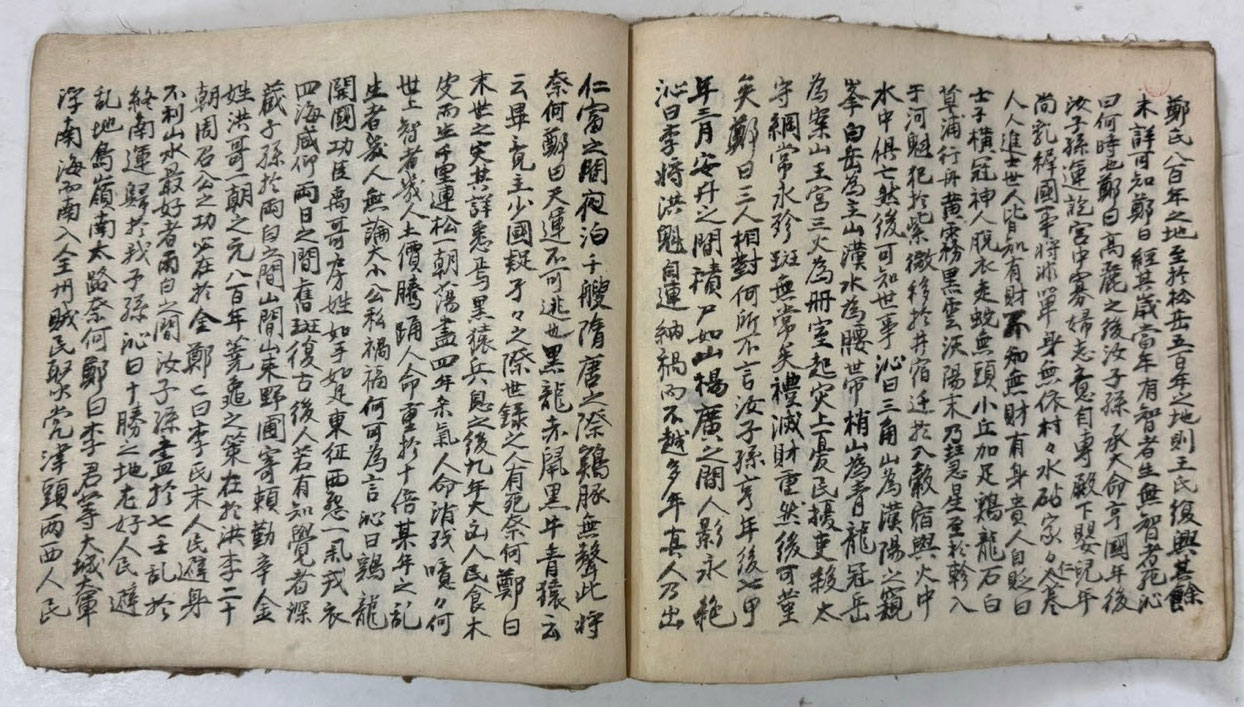 鄭氏八百年之地至於松岳五百年之地則王氏復興其餘
未詳可知鄭曰經其歲當年有智者生無智者死沁
曰何時也鄭曰高麗之後汝子孫承大命亨國年後
汝子孫運訖宮中寡婦志意自專殿下嬰兒年
尚乳繈國事將非單身無依村々水砧家々人蔘
人人進士世人皆知有財不知無財有身貴人自貶曰
士子橫冠神人脫衣走蛟無頭小丘加足鷄龍石白
草浦行舟黃霧黑雲沃陽末乃彗星至於軫入
于河魁犯於紫微移於井宿迁於八穀宿與火中
水中俱亡然後可知世事沁曰三角山為漢陽之窺
峯白岳為主山漢水為腰世帶梢山為青龍冠岳
為案山王宮三火為冊室起灾上憂民擾吏殺太
守綱常永殄斑無常矣禮滅財重然後可堂
矣鄭曰三人相對何所不言汝子孫亨年後七甲
年三月安丹之間積尸如山楊廣之間人影永絶
沁曰李將洪魁自運納禍而不越多年真人乃出
仁富之間夜泊千艘隋唐之際鷄豚無聲此將
奈何鄭曰天運不可逃也黑龍赤鼠黑牛青猿云
云畢竟主少國疑孑々之際世錄之人有死奈何鄭曰
末世之灾其詳悉焉黑猿兵息之後九年大凶人民食木
皮而生千里連松一朝蕩盡四年杀氣人命消殘嘖々何
世上智者幾人土價騰踊人命重於十倍某年之乱
生者幾人無論大小公私禍福何可為言沁曰鷄龍
開國功臣禹哥房姓如手如足東征西怨一夙戎衣
四海咸仰兩日之間舊斑復古後人若有知覺者深
藏子孫於兩白之間山間山東野圃寄賴勤辛金
姓洪哥一朝之元八百年蓍龜之策在於洪李二十
朝周召公之功必在於全鄭亡曰李民末人民避身
不利山水最好者兩白之間汝子孫盡於七壬乱於
終南運歸於我子孫沁曰十勝之地在好人民避
乱地鳥嶺南太路奈何鄭曰李君等大城奮軍
浮南海而南入全州賊民聚党津頭兩西人民